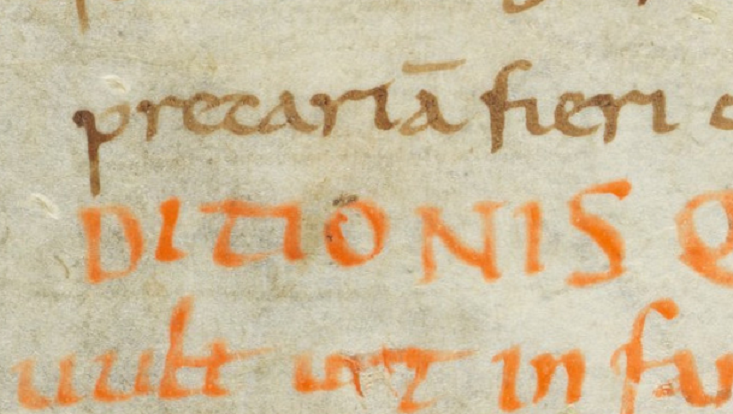 precariā fieri
DITIONIS
uult ut in